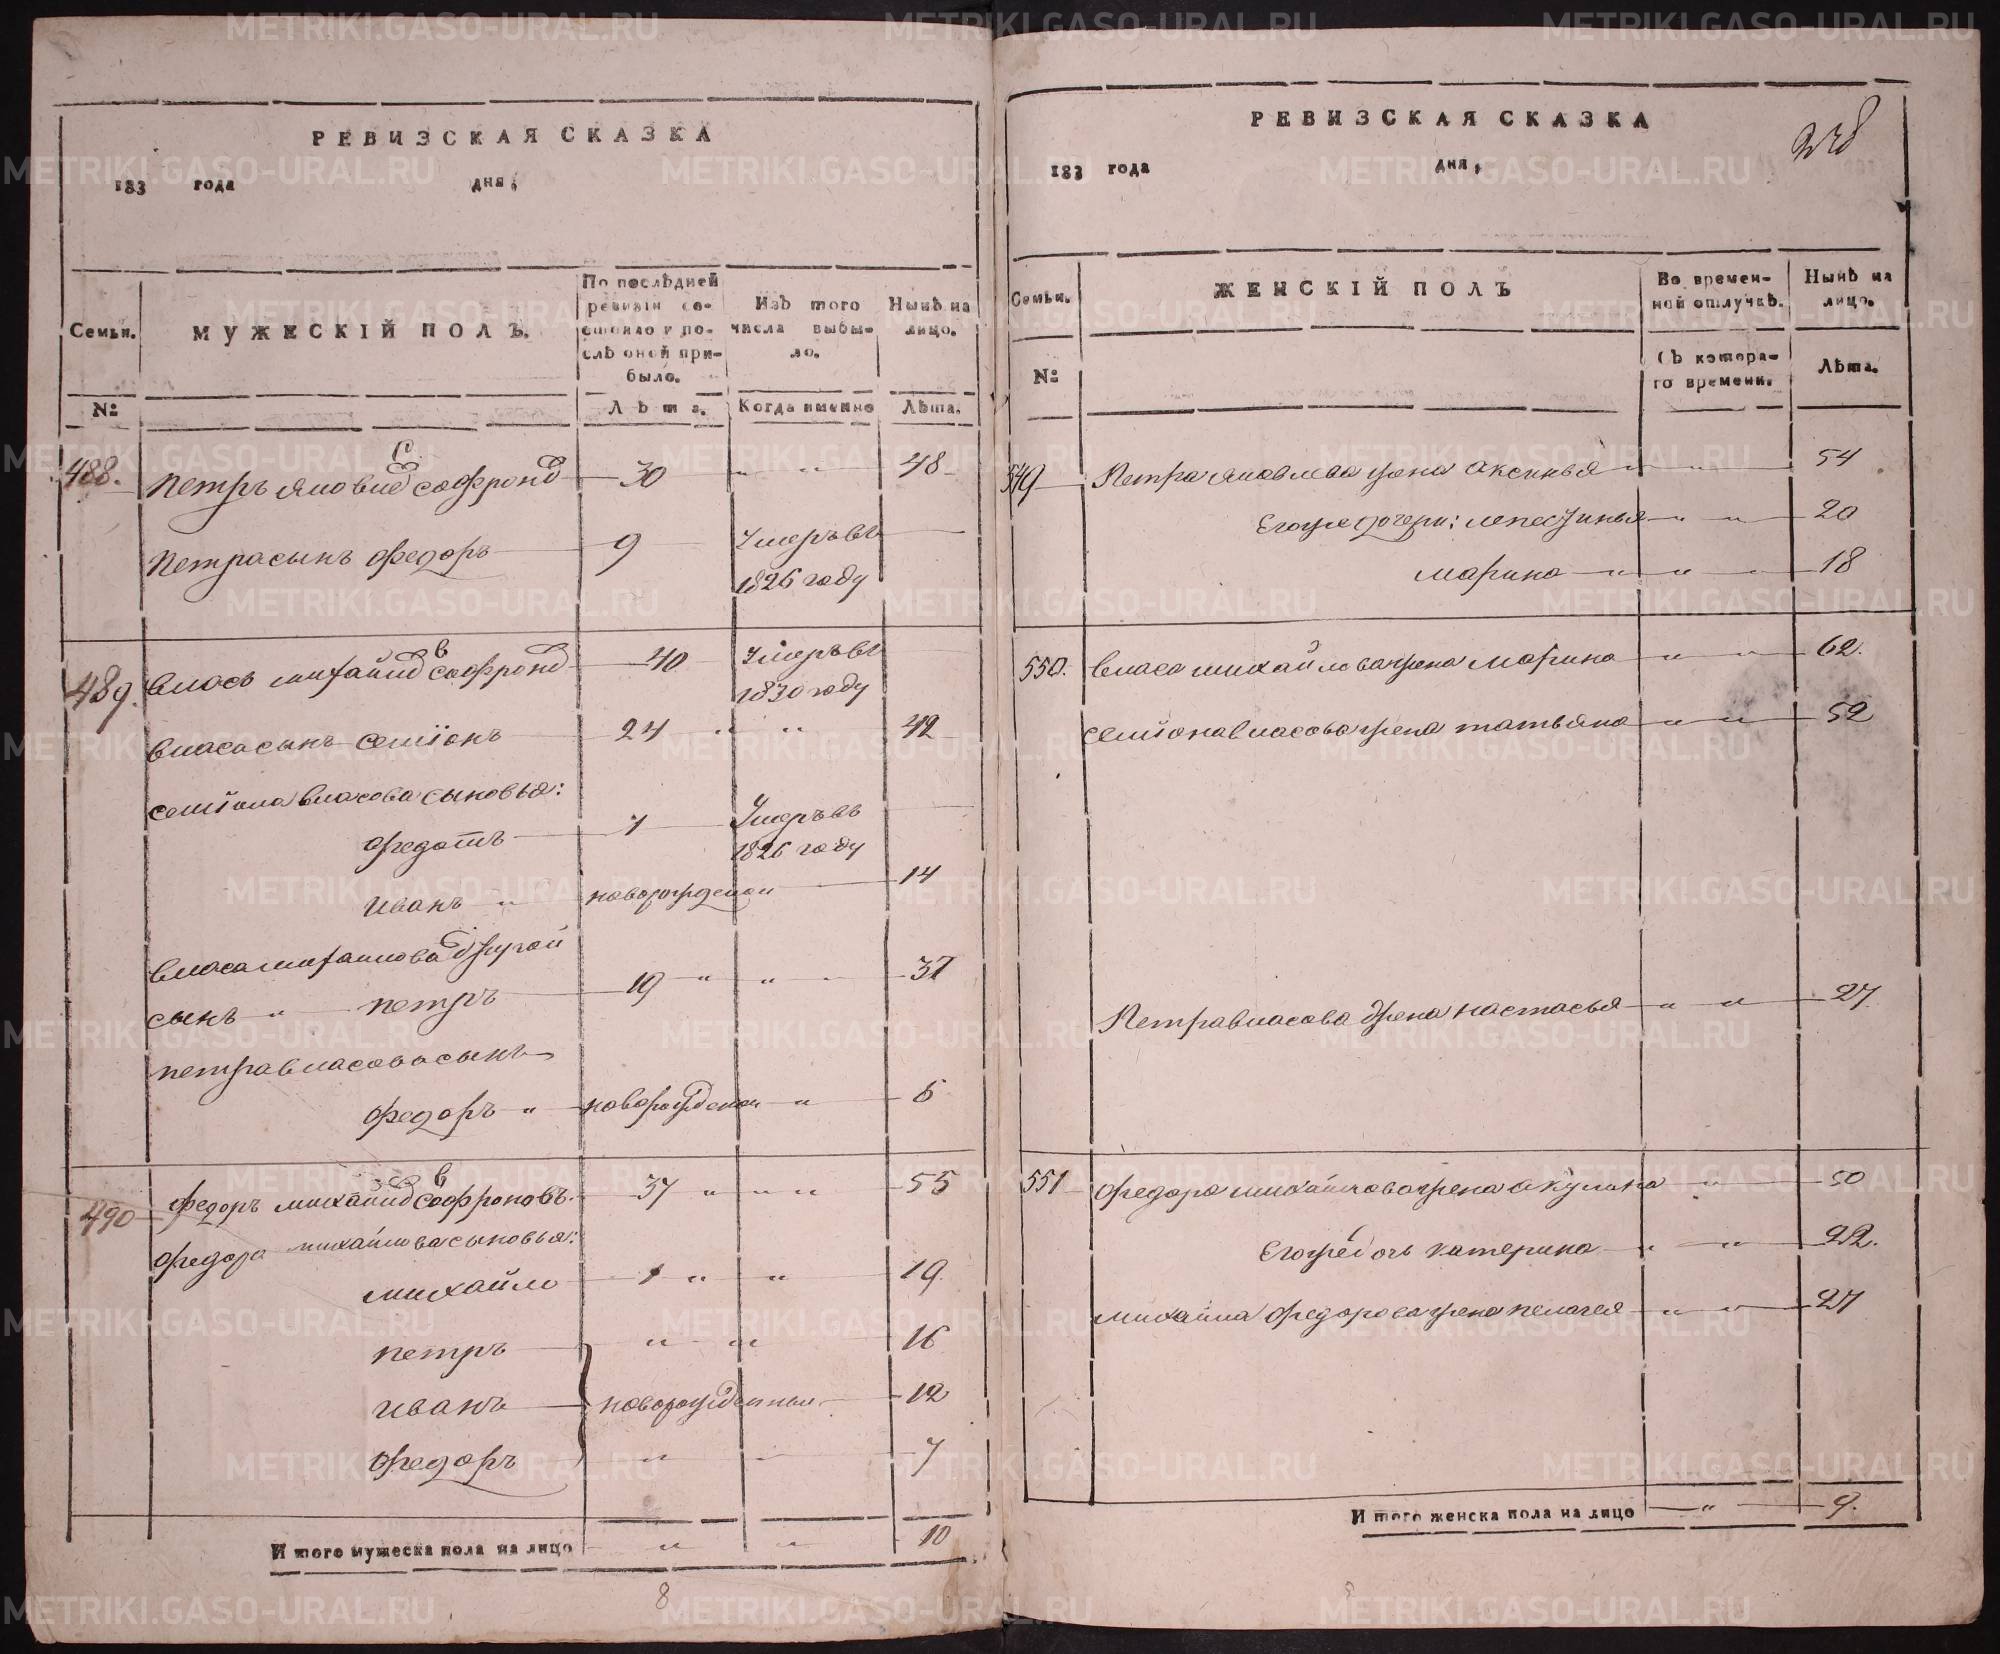 РЕВИЗСКАЯ СКАЗКА
183 года дня,
Семьи. МУЖЕСКІЙ ПОЛЪ. По послѣдней ревизіи состояло и послѣ оной прибыло. Изъ того числа выбыло. Нынѣ на лицо.
№ Лѣта. Когда именно Лѣта.
488. Петръ Яковлев Софронов 30 " " 48
Петра сынъ Федоръ 9 Умеръ въ
1826 году
489. Власъ Михайлов Софронов 40 Умеръ въ
1830 году
Власа сынъ Семіонъ 24 " " 42
Семіона Власова сыновья:
Федотъ 7 Умеръ въ
1826 году
Иванъ " новорожденои 14
Власа Михаилова другой
сынъ " Петръ 19 " " 37
Петра Власова сынъ
Федоръ " новорожденои " 6
490 Федоръ Михайлов Софроновъ. 37 " " " 55
Федора Михайлова сыновья:
Михайло 1 " " 19
Петръ " " 16
Иванъ новорожденныи 12
Федоръ " " 7
Итого мужеска пола на лицо " " 10
8
РЕВИЗСКАЯ СКАЗКА
183 года дня,
Семьи. ЖЕНСКІЙ ПОЛЪ Во временной отлучкѣ. Нынѣ на лицо.
№ Съ котораго времени. Лѣта.
549 Петра Яковлева жена Аксинья " " 54
Егоже дочери: Лепестинья " " 20
Марина " " " 18
550. Власа Михайлова жена Марина " " 62.
Семіона Власова жена Татьяна " " 52
Петра Власова жена Настасья " " 27
551 Федора Михайлова жена Акулина " 50
Егоже дочь Катерина " " 22.
Михаила Федорова жена Пелагея " " 27
Итого женска пола на лицо " 9.